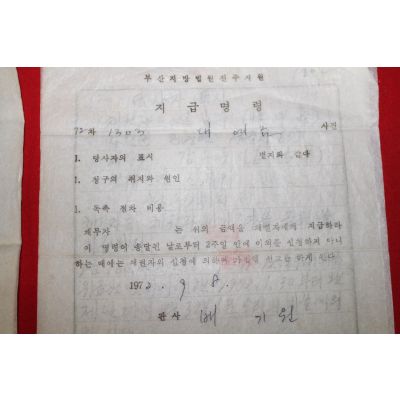 부산지방법원진주지원
지급명령
72차 1303 대여금 사건
1. 당사자의 표시 별지와 같다
1. 청구의 취지와 원인
1. 독촉 절차 비용
채무자 는 위의 금액을 채권자에게 지급하라
이 명령이 송달된 날로부터 2주일 안에 이의를 신청하지 아니
하는 때에는 채권자의 신청에 의하여 가집행 선고를 하게 된다
1972. 9. 8.
판사 배기원